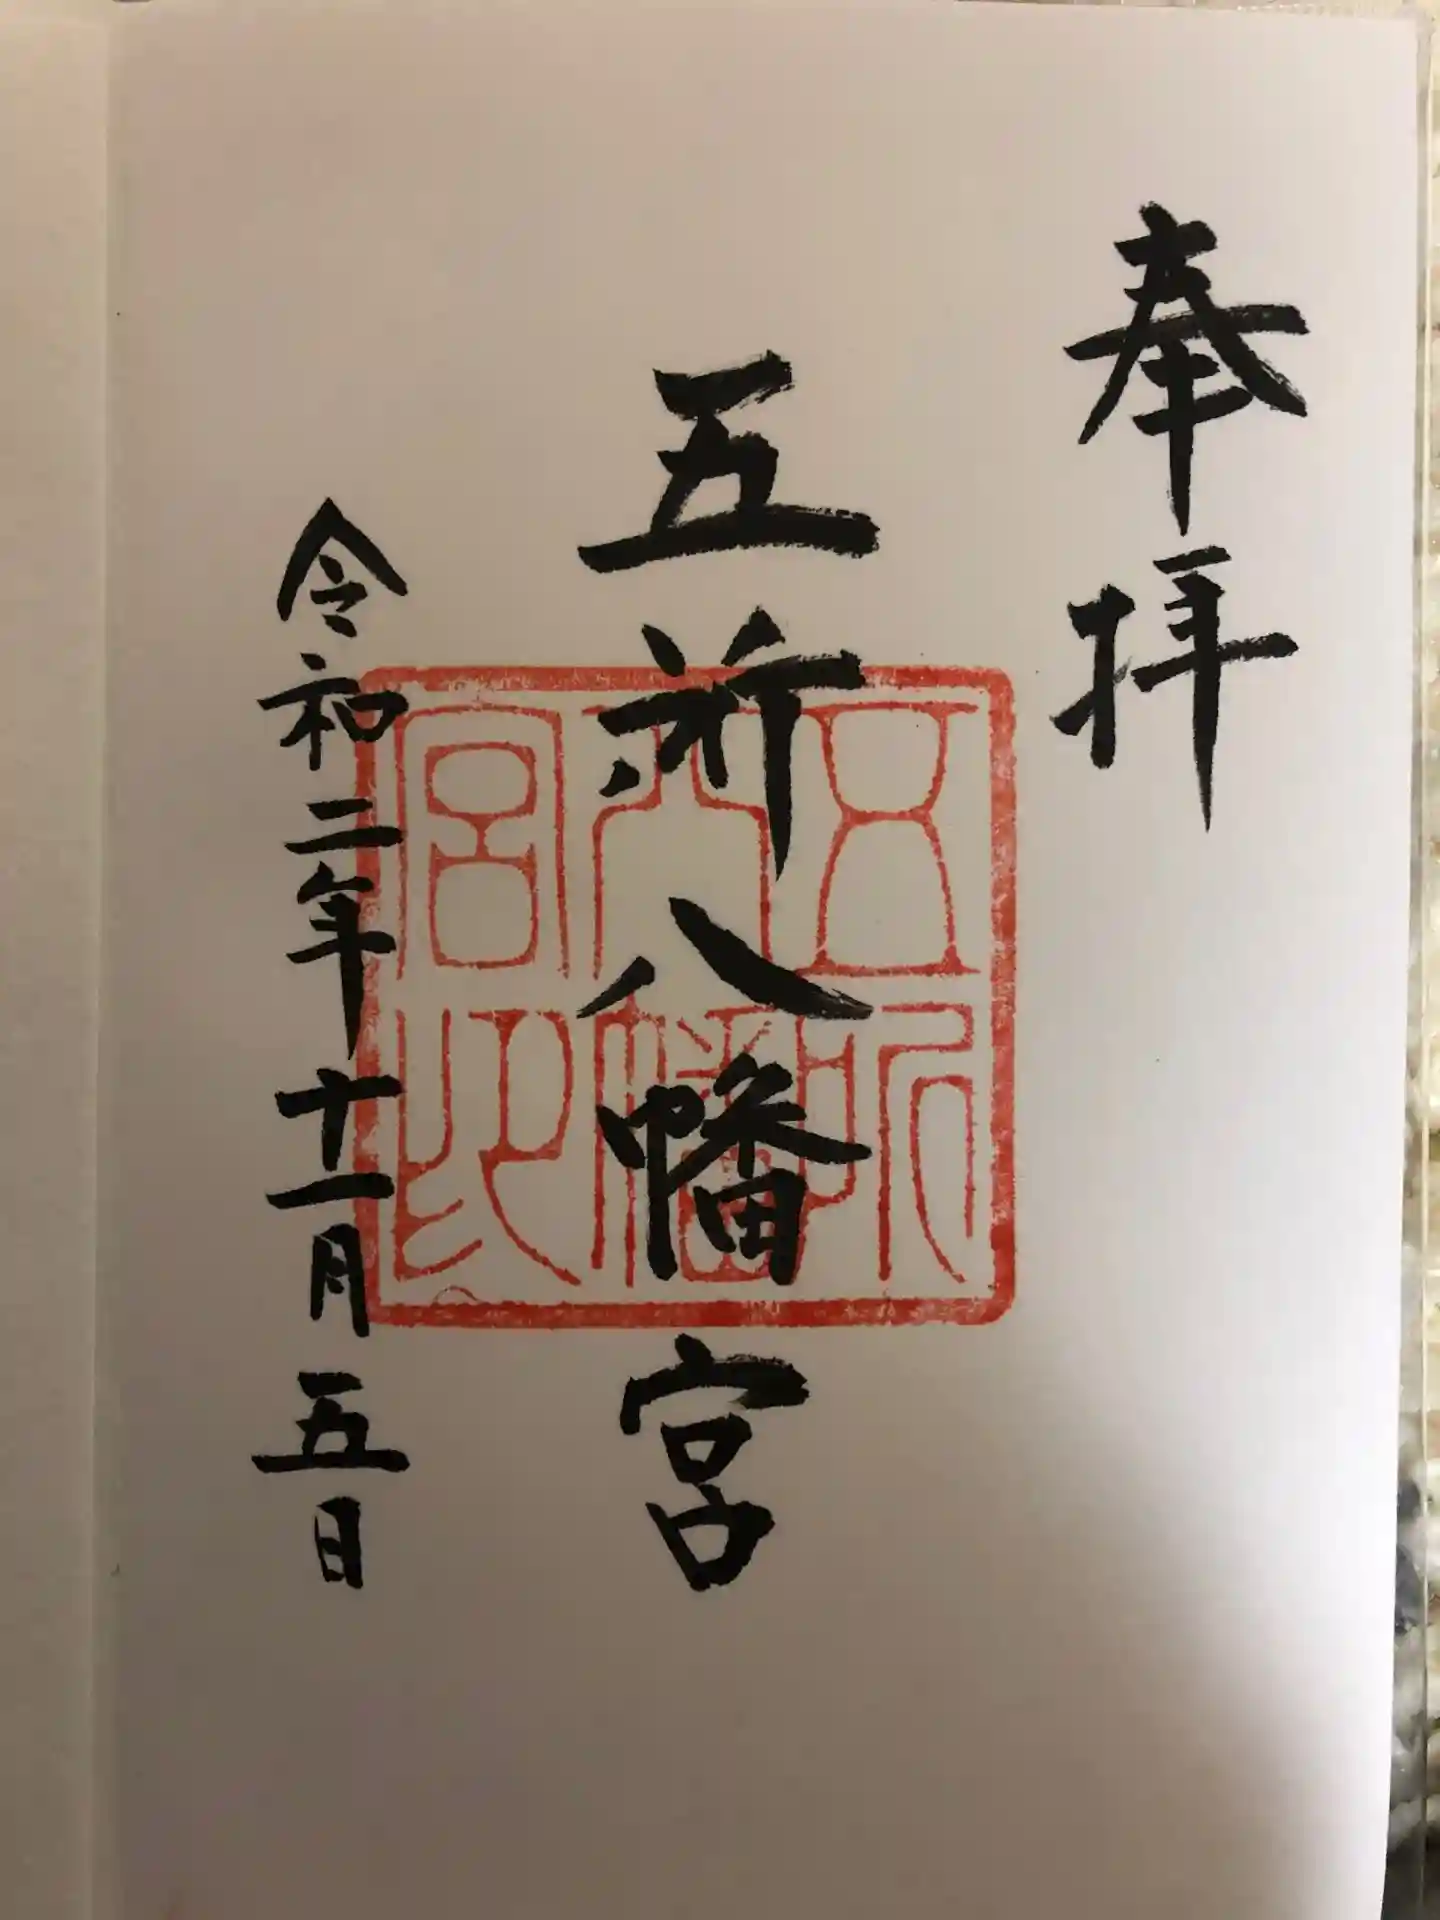 奉拝
五所八幡宮
令和二年十一月五日
五所
八幡
宮印